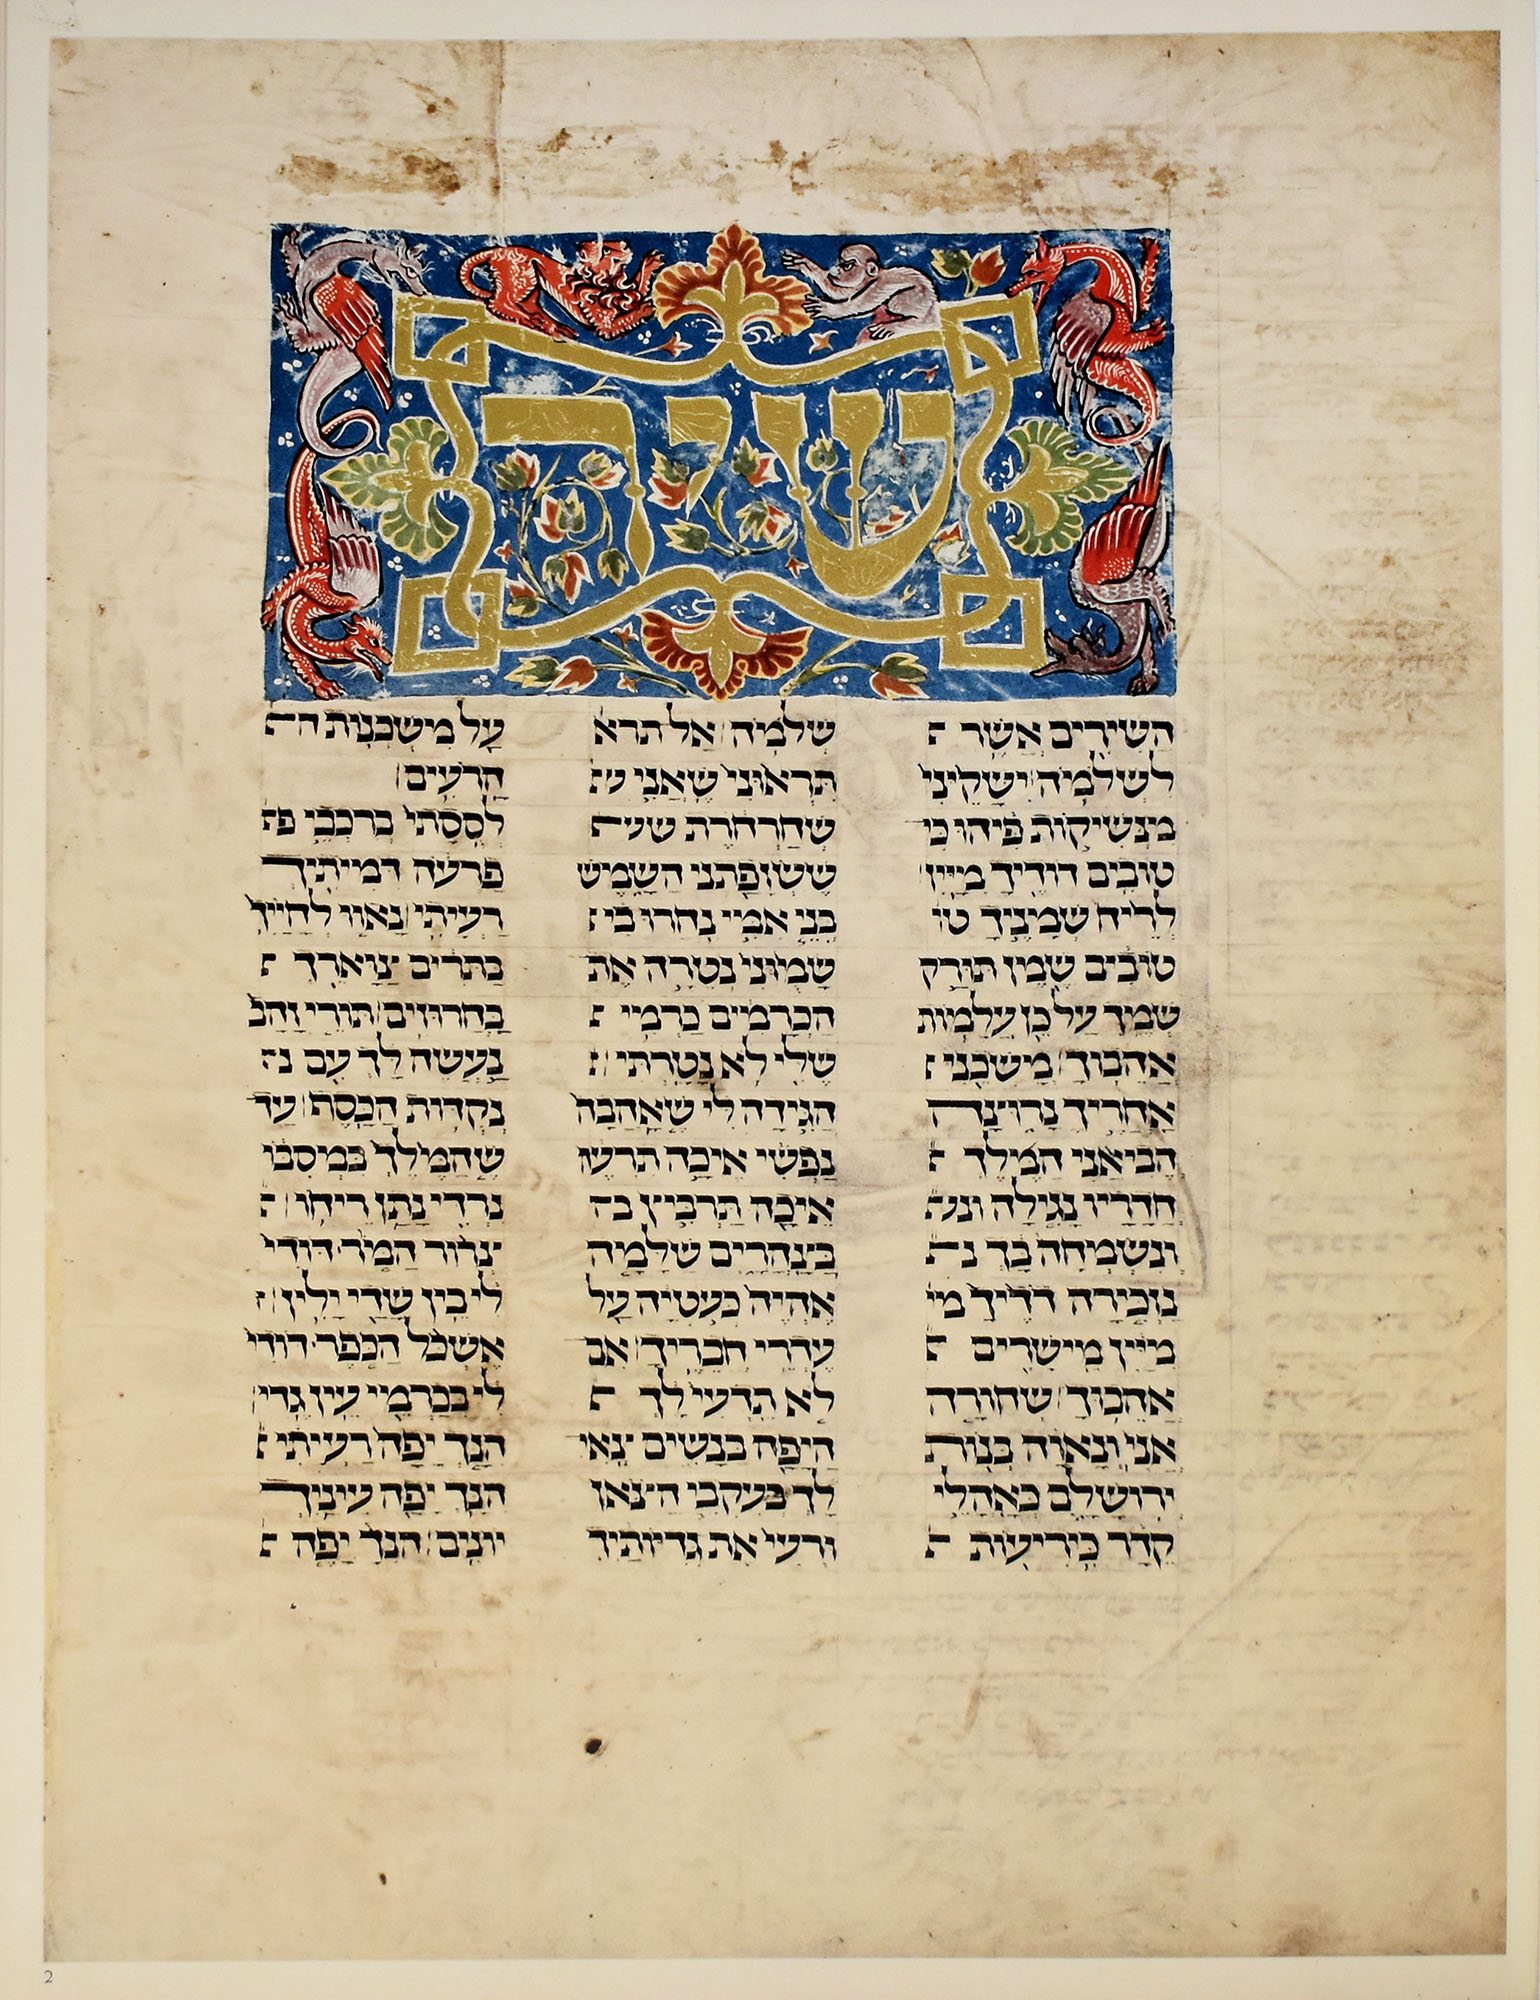 שיר
השירים אשר
לשלמה ישקיני
מנשיקות פיהו כי
טובים דודיך מיין
לריח שמניך טו
טובים שמן תורק
שמך על כן עלמות
אהבוך משכני
אחריך נרוצה
הביאני המלך
חדריו נגילה ונש
ונשמחה בך נ
נזכירה דדיך מי
מיין מישרים
אהבוך שחורה
אני ונאוה בנות
ירושלם כאהלי
קדר כיריעות
שלמה אל תרא
תראוני שאני ש
שחרחרת שש
ששזפתני השמש
בני אמי נחרו בי
שמוני נטרה את
הכרמים כרמי
שלי לא נטרתי
הגידה לי שאהבה
נפשי איכה תרעה
איכה תרביץ ב
בצהרים שלמה
אהיה כעטיה על
עדרי חבריך אם
לא תדעי לך
היפה בנשים צאי
לך בעקבי הצאן
ורעי את גדיותיך
על משכנות ה
הרעים
לססתי ברכבי פ
פרעה דמיתיך
רעיתי נאוו לחייך
בתרים צוארך
בחרוזים תורי זהב
נעשה לך עם נ
נקדות הכסף עד
שהמלך במסבו
נרדי נתן ריחו
צרור המר דודי
לי בין שדי ילין
אשכל הכפר דודי
לי בכרמי עין גדי
הנך יפה רעיתי
הנך יפה עיניך
יונים הנך יפה
2